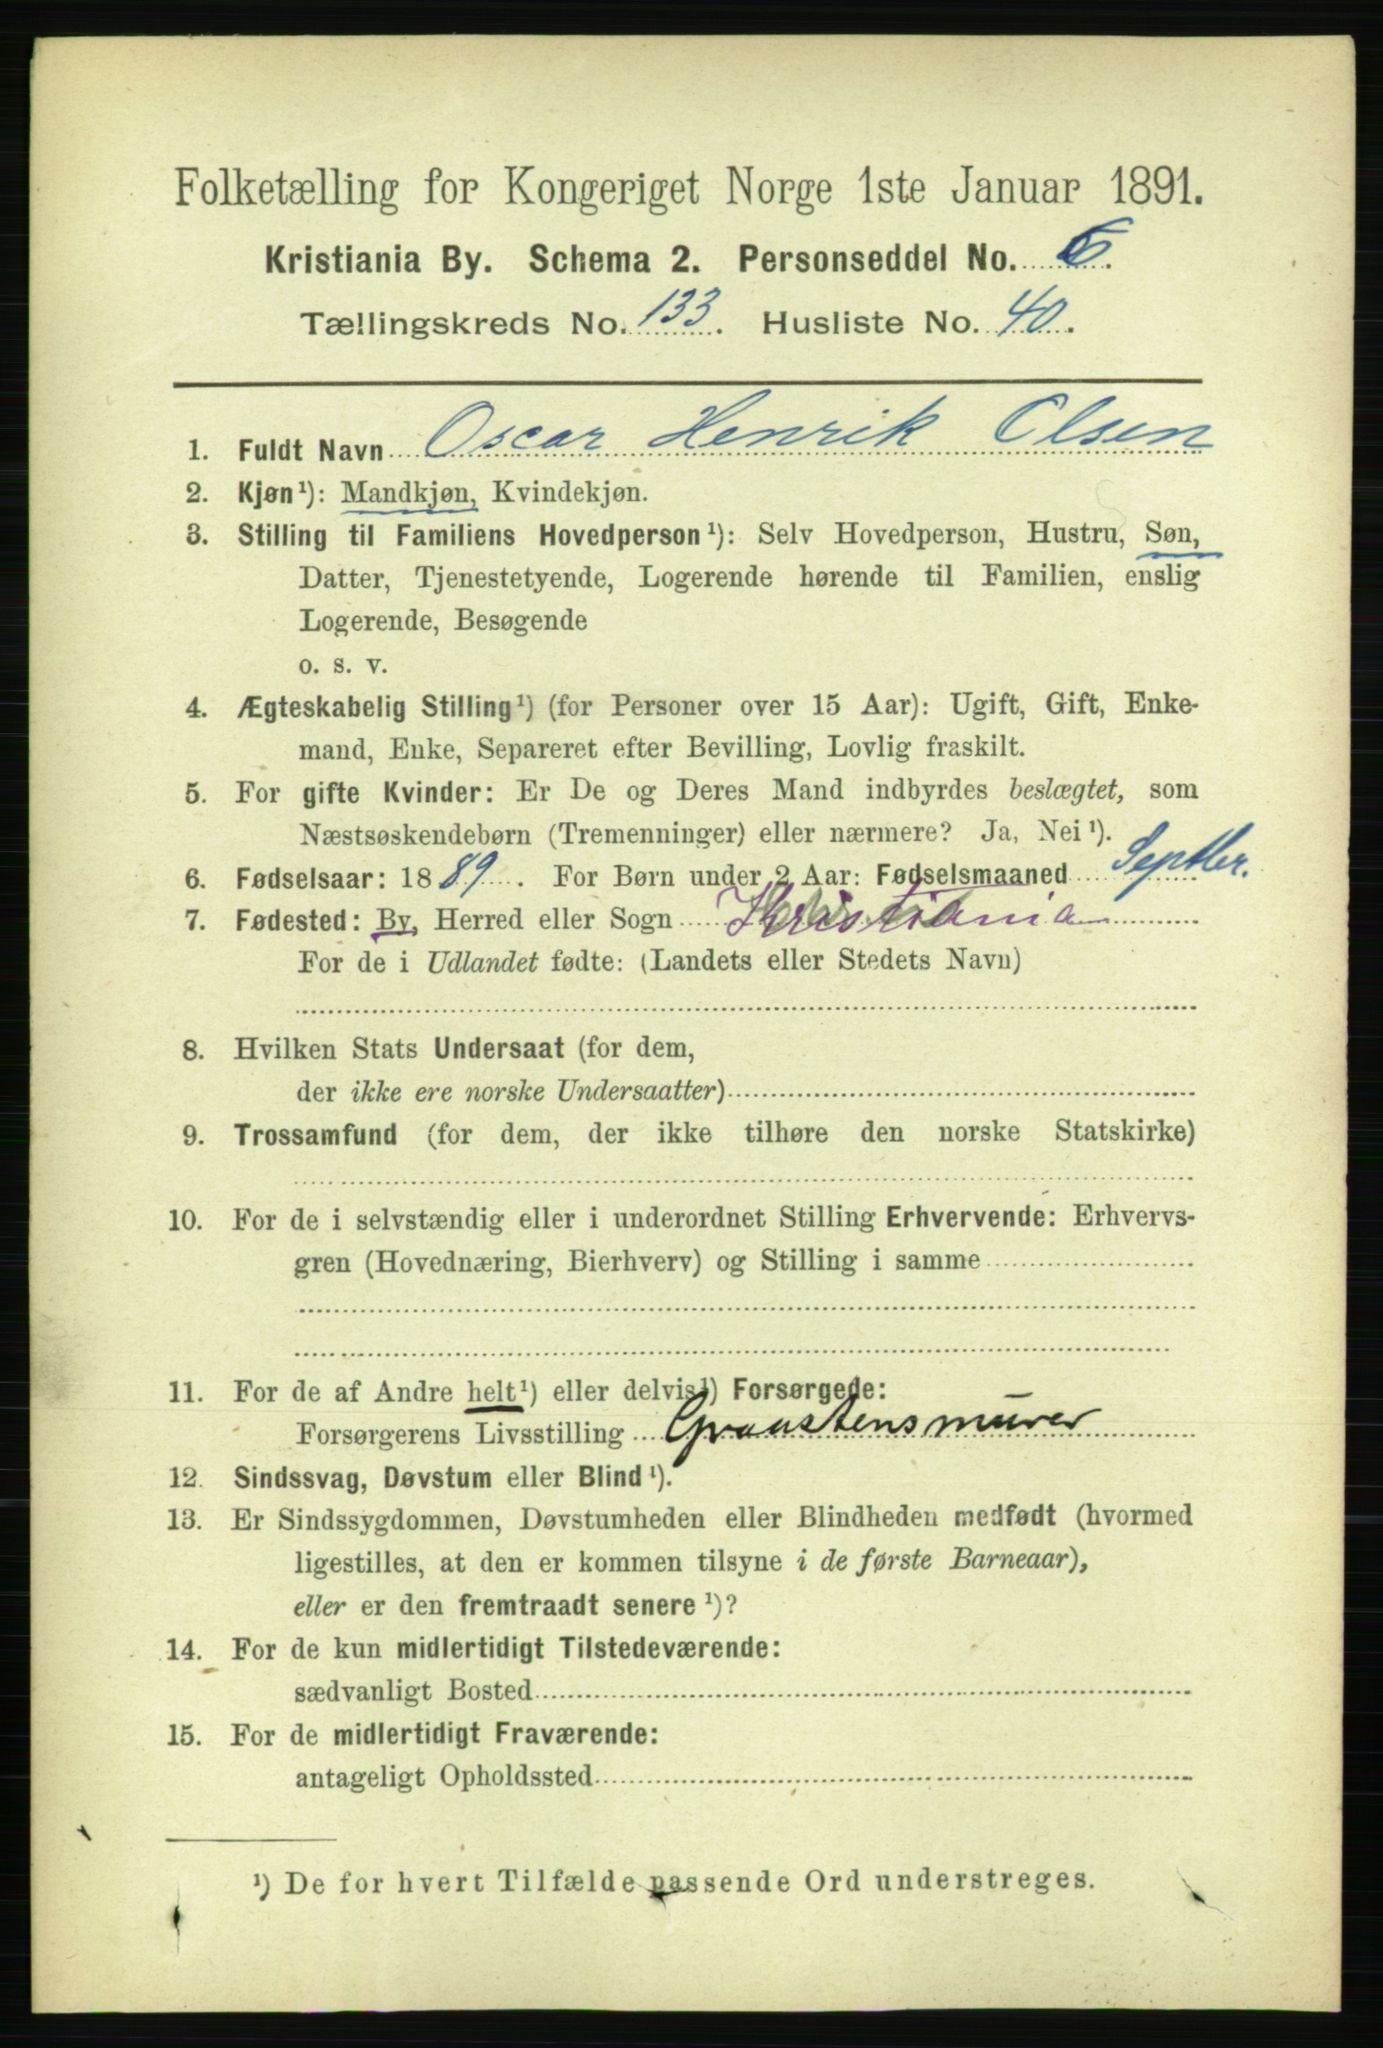 Folketælling for Kongeriget Norge 1ste Januar 1891.
Kristiania By. Schema 2. Personseddel No. 6.
Tællingskreds No. 133. Husliste No. 40.
1. Fuldt Navn Oscar Henrik Olsen
2. Kjøn¹): Mandkjøn, Kvindekjøn.
3. Stilling til Familiens Hovedperson¹): Selv Hovedperson, Hustru, Søn,
Datter, Tjenestetyende, Logerende hørende til Familien, enslig
Logerende, Besøgende
o. s. v.
4. Ægteskabelig Stilling¹) (for Personer over 15 Aar): Ugift, Gift, Enke-
mand, Enke, Separeret efter Bevilling, Lovlig fraskilt.
5. For gifte Kvinder: Er De og Deres Mand indbyrdes beslægtet, som
Næstsøskendebørn (Tremenninger) eller nærmere? Ja, Nei¹).
6. Fødselsaar: 1889. For Børn under 2 Aar: Fødselsmaaned Septbr.
7. Fødested: By, Herred eller Sogn Kristiania
For de i Udlandet fødte: (Landets eller Stedets Navn)
8. Hvilken Stats Undersaat (for dem,
der ikke ere norske Undersaatter)
9. Trossamfund (for dem, der ikke tilhøre den norske Statskirke)
10. For de i selvstændig eller i underordnet Stilling Erhvervende: Erhvervs-
gren (Hovednæring, Bierhverv) og Stilling i samme
11. For de af Andre helt¹) eller delvis¹) Forsørgede:
Forsørgerens Livsstilling Graastensmurer
12. Sindssvag, Døvstum eller Blind¹).
13. Er Sindssygdommen, Døvstumheden eller Blindheden medfødt (hvormed
ligestilles, at den er kommen tilsyne i de første Barneaar),
eller er den fremtraadt senere¹)?
14. For de kun midlertidigt Tilstedeværende:
sædvanligt Bosted
15. For de midlertidigt Fraværende:
antageligt Opholdssted
¹) De for hvert Tilfælde passende Ord understreges.